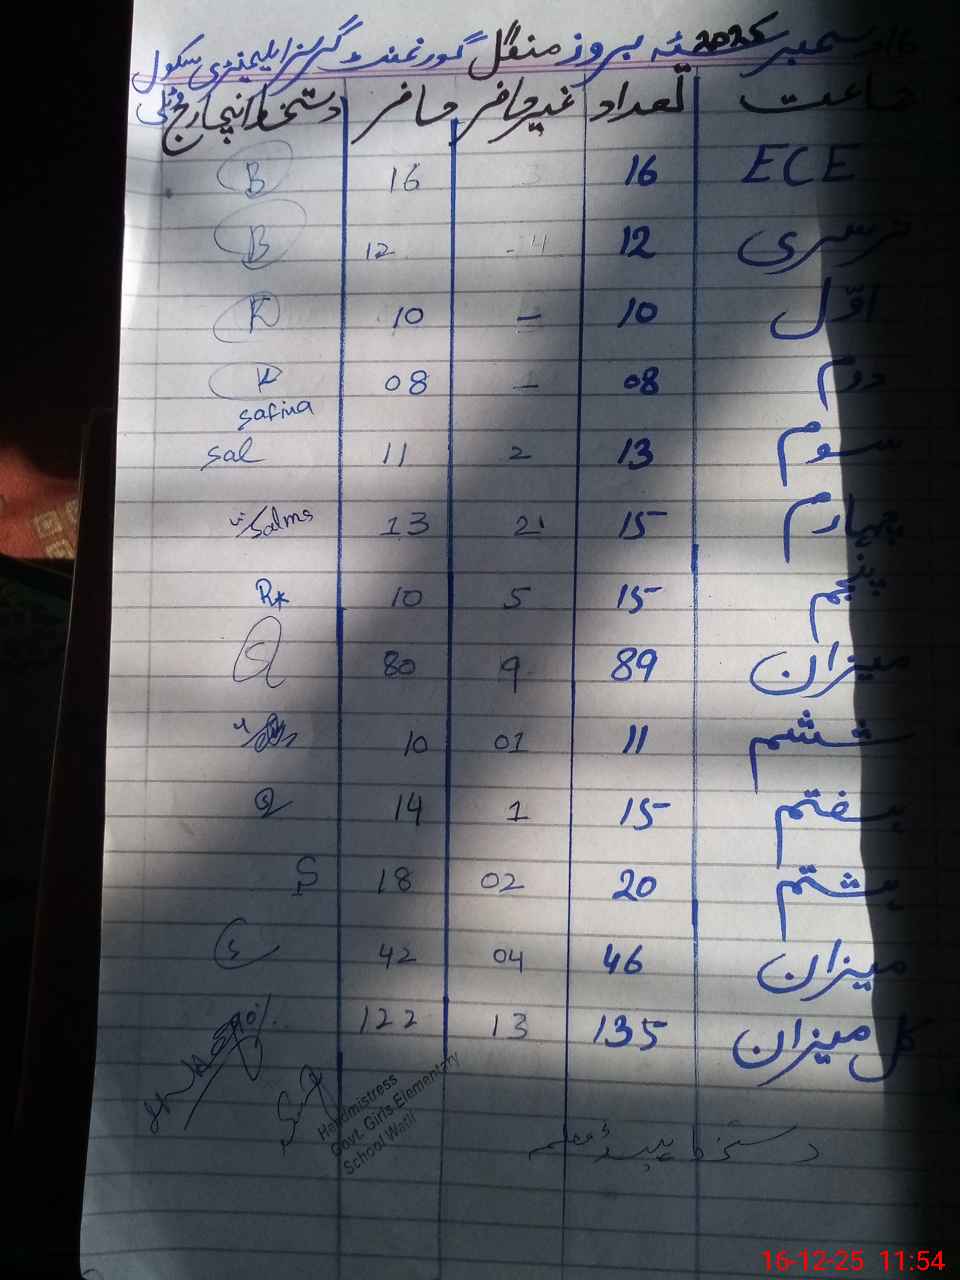 16 دسمبر 2025ئہ بروز منگل گورنمنٹ گرلز ایلیمنٹری سکول
جماعت تعداد غیرحافر حافر دستخط انچارج
ECE 16 3 16 B
نرسری 12 -4 12 B
اوّل 10 – 10 K
دوم 08 – 08 K
safina
سوم 13 2 11 Sal
چہارم 15 2 13 Salma
پنجم 15 5 10 R
میزان 89 9 80
ششم 11 01 10
ہفتم 15 1 14
ہشتم 20 02 18 S
میزان 46 04 42
کل میزان 135 13 122
90%
Headmistress
Govt. Girls Elementary
School
دستخط ہیڈ معلمہ
16-12-25 11:54